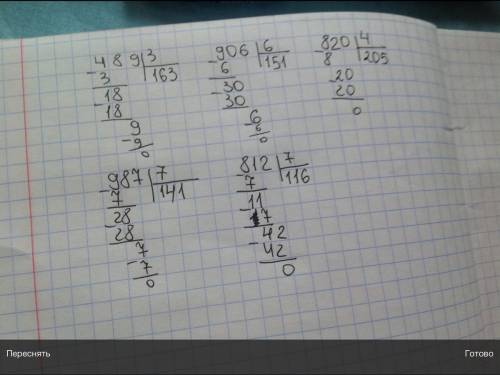 489 3
3 163
18
18
9
9
0
906 6
6 151
30
30
6
6
0
820 4
8 205
20
20
0
987 7
7 141
28
28
7
7
0
812 7
7 116
11
7
42
42
0
Переснять
Готово